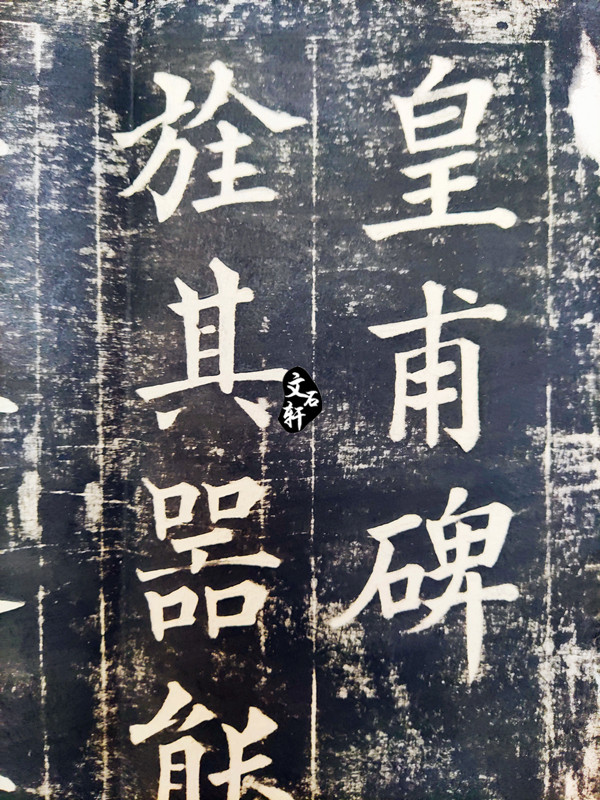 皇甫碑
旌其器能
文石轩